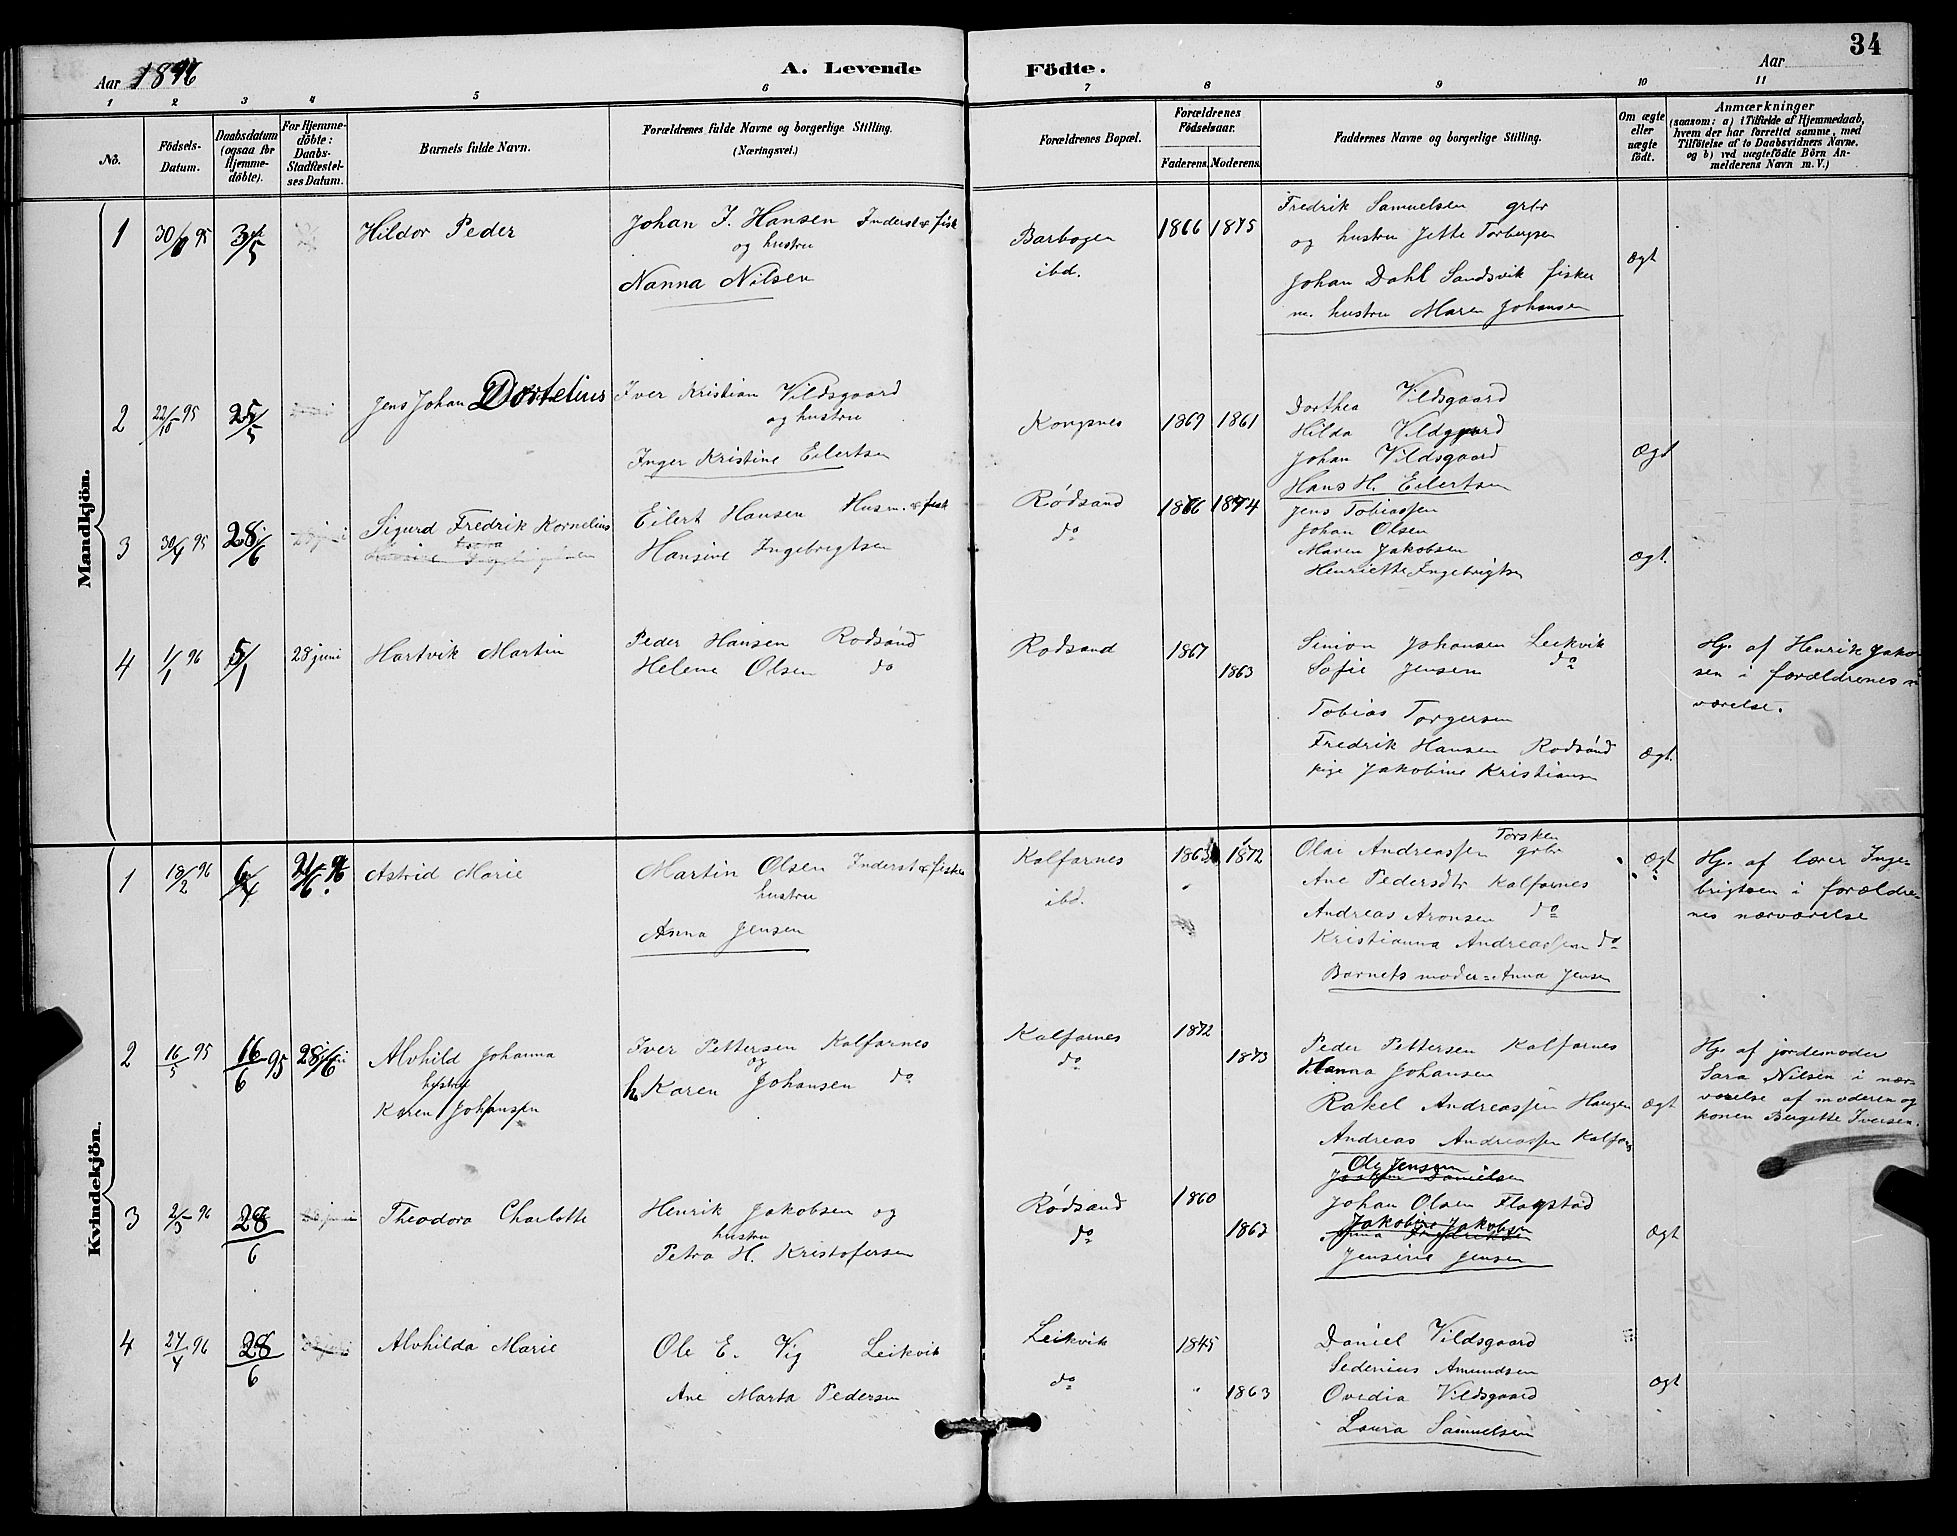 34
Aar 1896
A. Levende Födte.
Aar
1 2 3 4 5 6 7 8 9 10 11
No.
Födsels-Datum.
Daabsdatum (ogsaa for Hjemme-döbte).
For Hjemme-döbte: Daabs-Stadfæstel-ses Datum.
Barnets fulde Navn.
Forældrenes fulde Navne og borgerlige Stilling.
(Næringsvei.)
Forældrenes Bopæl.
Forældrenes Födselsaar.
Faderens. Moderens.
Faddernes Navne og borgerlige Stilling.
Om ægte eller uægte födt.
Anmærkninger
(saasom: a) i Tilfælde af Hjemmedaab,
hvem der har forrettet samme, med
Tilföielse af to Daabsvidners Navne.
og b) ved uægtefödte Börn An-
melderens Navn m. V.)
Mandkjön.
1 95 Hildor Peder
Johan J. Hansen Inderst & fisk
og hustru
Nanna Nilsen
Barbogen
ibd.
1866 1875
Fredrik Samuelsen grbr
og hustru Jette Torbergsen
Johan Dahl Sandsvik fisker
m. hustru Maren Johansen
Ægt
2 22/10 95 25/5 Jens Johan Dortelius
Iver Kristian Vildsgaard
og hustru
Inger Kristine Eilertsen
Kongsnes
1869 1861
Dorthea Vildsgaard
Hilda Vildsgaard
Johan Vildsgaard
Hans H. Eilertsen
Ægt
3 30/4 95 28/6 Sigurd Fredrik Kornelius
Eilert Hansen Husm. & fisk
Hansine Ingebrigtsen
Rødsand
do
1866 1874
Jens Tobiassen
Johan Olsen
Maren Jakobsen
Henriette Ingebrigtsen
Ægt.
4 1/1 96 5/1 28 juni Hartvik Martin
Peder Hansen Rodsand
Helene Olsen do
Rodsand
1867
1863
Simon Johansen Leikvik
Sofie Jensen do
Tobias Torgersen
Fredrik Hansen Rodsand
pige Jakobine Kristiansen
Ægt.
Hj. af Henrik Jakob-
sen i forældrenes n
værelse.
Kvindekjön.
1 18/2 96 6/4 21/6 96 Astrid Marie
Martin Olsen Inderst & fisker
hustru
Anna Jensen
Kalfarnes
ibd.
1863 1872
Olai Andreassen Torsken grbr
Ane Pedersdtr Kalfarnes
Andreas Aronsen do
Kristianna Andreassen do
Barnets moder = Anna Jensen
Ægt
Hj. af lærer Inge-
brigtsen i forældre-
nes nærværelse
2 16/5 95 16/6 95 28/6 Alvhild Johanna
hustru
Karen Johansen
Iver Pettersen Kalfarnes
og
h. Karen Johansen do
Kalfarnes
do
1872
1873
Peder Pettersen Kalfarnes
Hanna Johansen
Rakel Andreassen Haugen
Andreas Andreassen Kalfarnes
Ægt
Hj. af jordemoder
Sara Nilsen i nær-
værelse af moderen og
konen Bergitte Iversen.
3 2/3 96 28/6 Theodora Charlotte
Henrik Jakobsen og
hustru
Petra H. Kristofersen
Rødsand
do
1860
1863
Ole Jensen
Danielsen
Johan Olsen Flagstad
Jakobine Jakobsen
Anna Fredriksen
Jensine Jensen
Ægt
4 27/4 96 28/6 Alvhilda Marie
Ole E. Vig Leikvik
Ane Marta Pedersen
Leikvik
do
1845
1863
Daniel Vildsgaard
Sedenius Amundsen
Ovedia Vildsgaard
Laura Samuelsen
Ægt